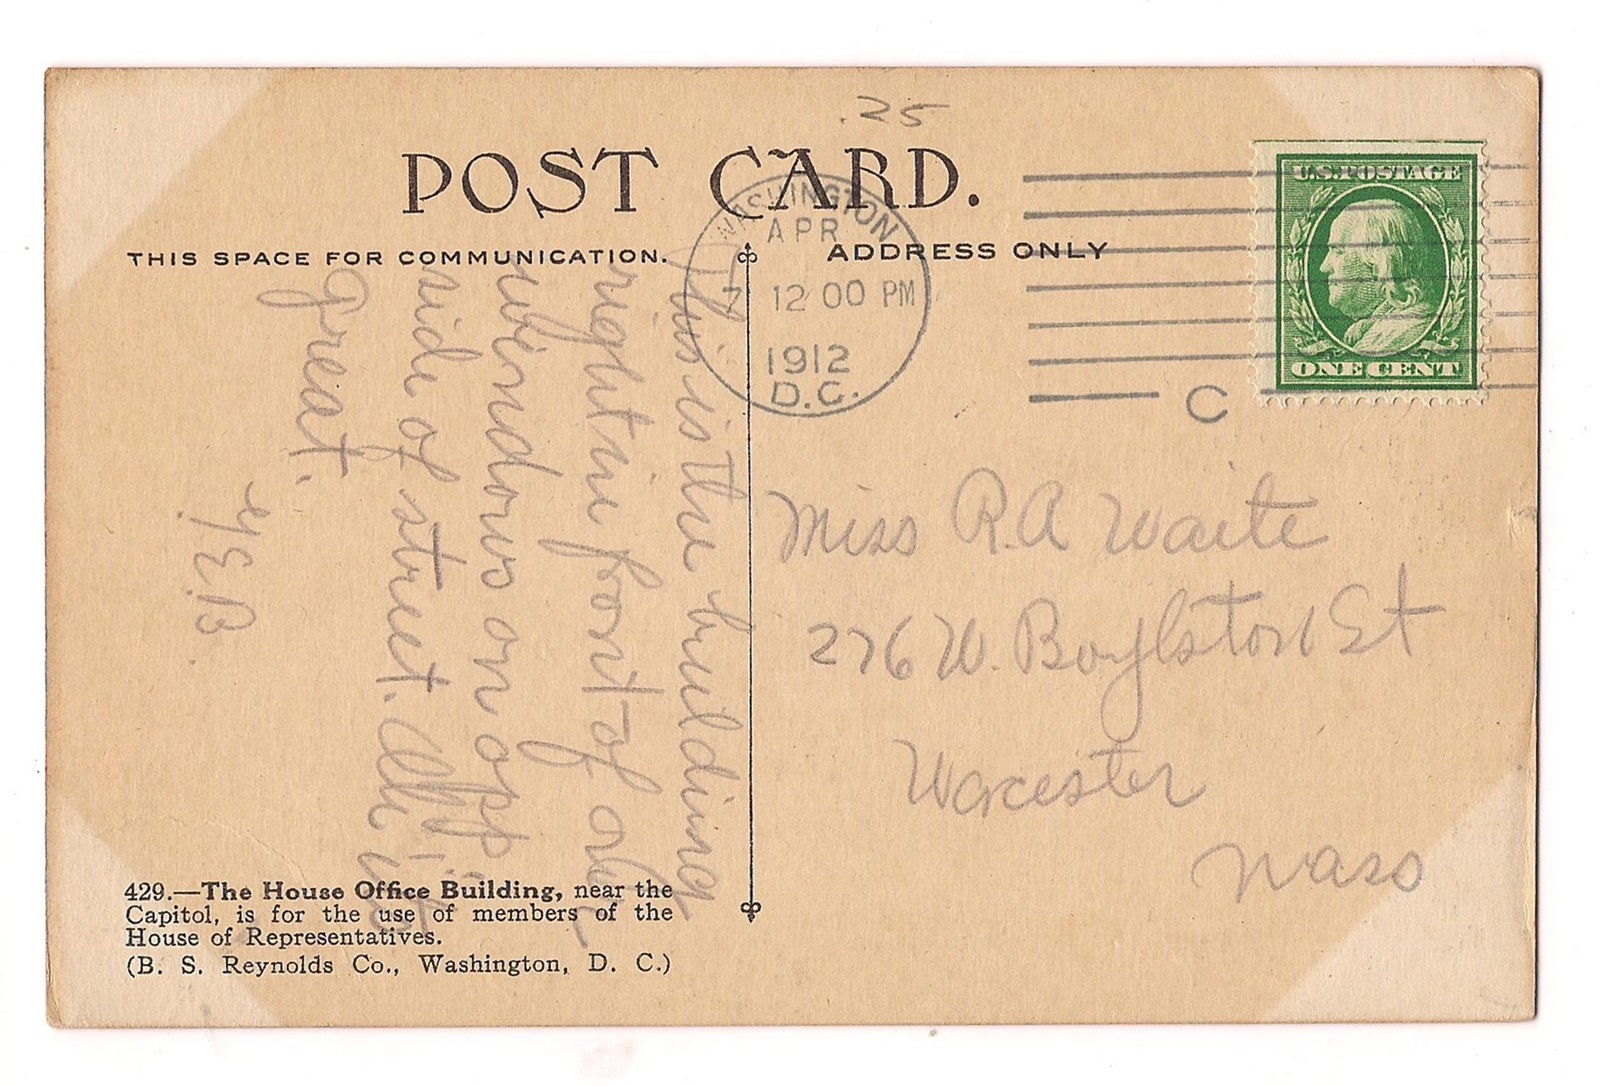 .25
POST CARD.
THIS SPACE FOR COMMUNICATION.
ADDRESS ONLY
WASHINGTON
APR
7 12 00 PM
1912
D.C.
C
U.S. POSTAGE
ONE CENT
This is the building
right in front of our
windows on opp
side of street. is
great.
E.B.
Miss R.A Waite
276 W. Boylston St
Worcester
Mass
429.—The House Office Building, near the
Capitol, is for the use of members of the
House of Representatives.
(B. S. Reynolds Co., Washington, D. C.)